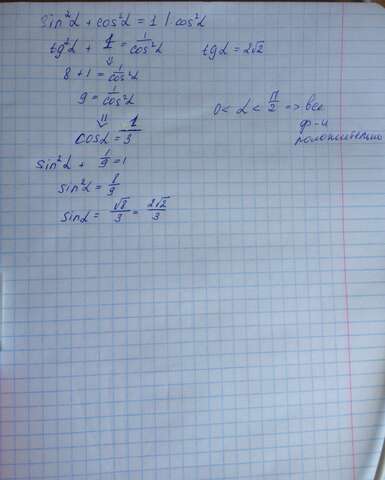 sin²α + cos²α = 1 | : cos²α
tg²α + 1 = 1/cos²α
tgα = 2√2
⇓
8 + 1 = 1/cos²α
9 = 1/cos²α
0 < α < π/2 => все
ф-и
положительно
⇓
cosα = 1/3
sin²α + 1/9 = 1
sin²α = 8/9
sinα = √8/3 = 2√2/3